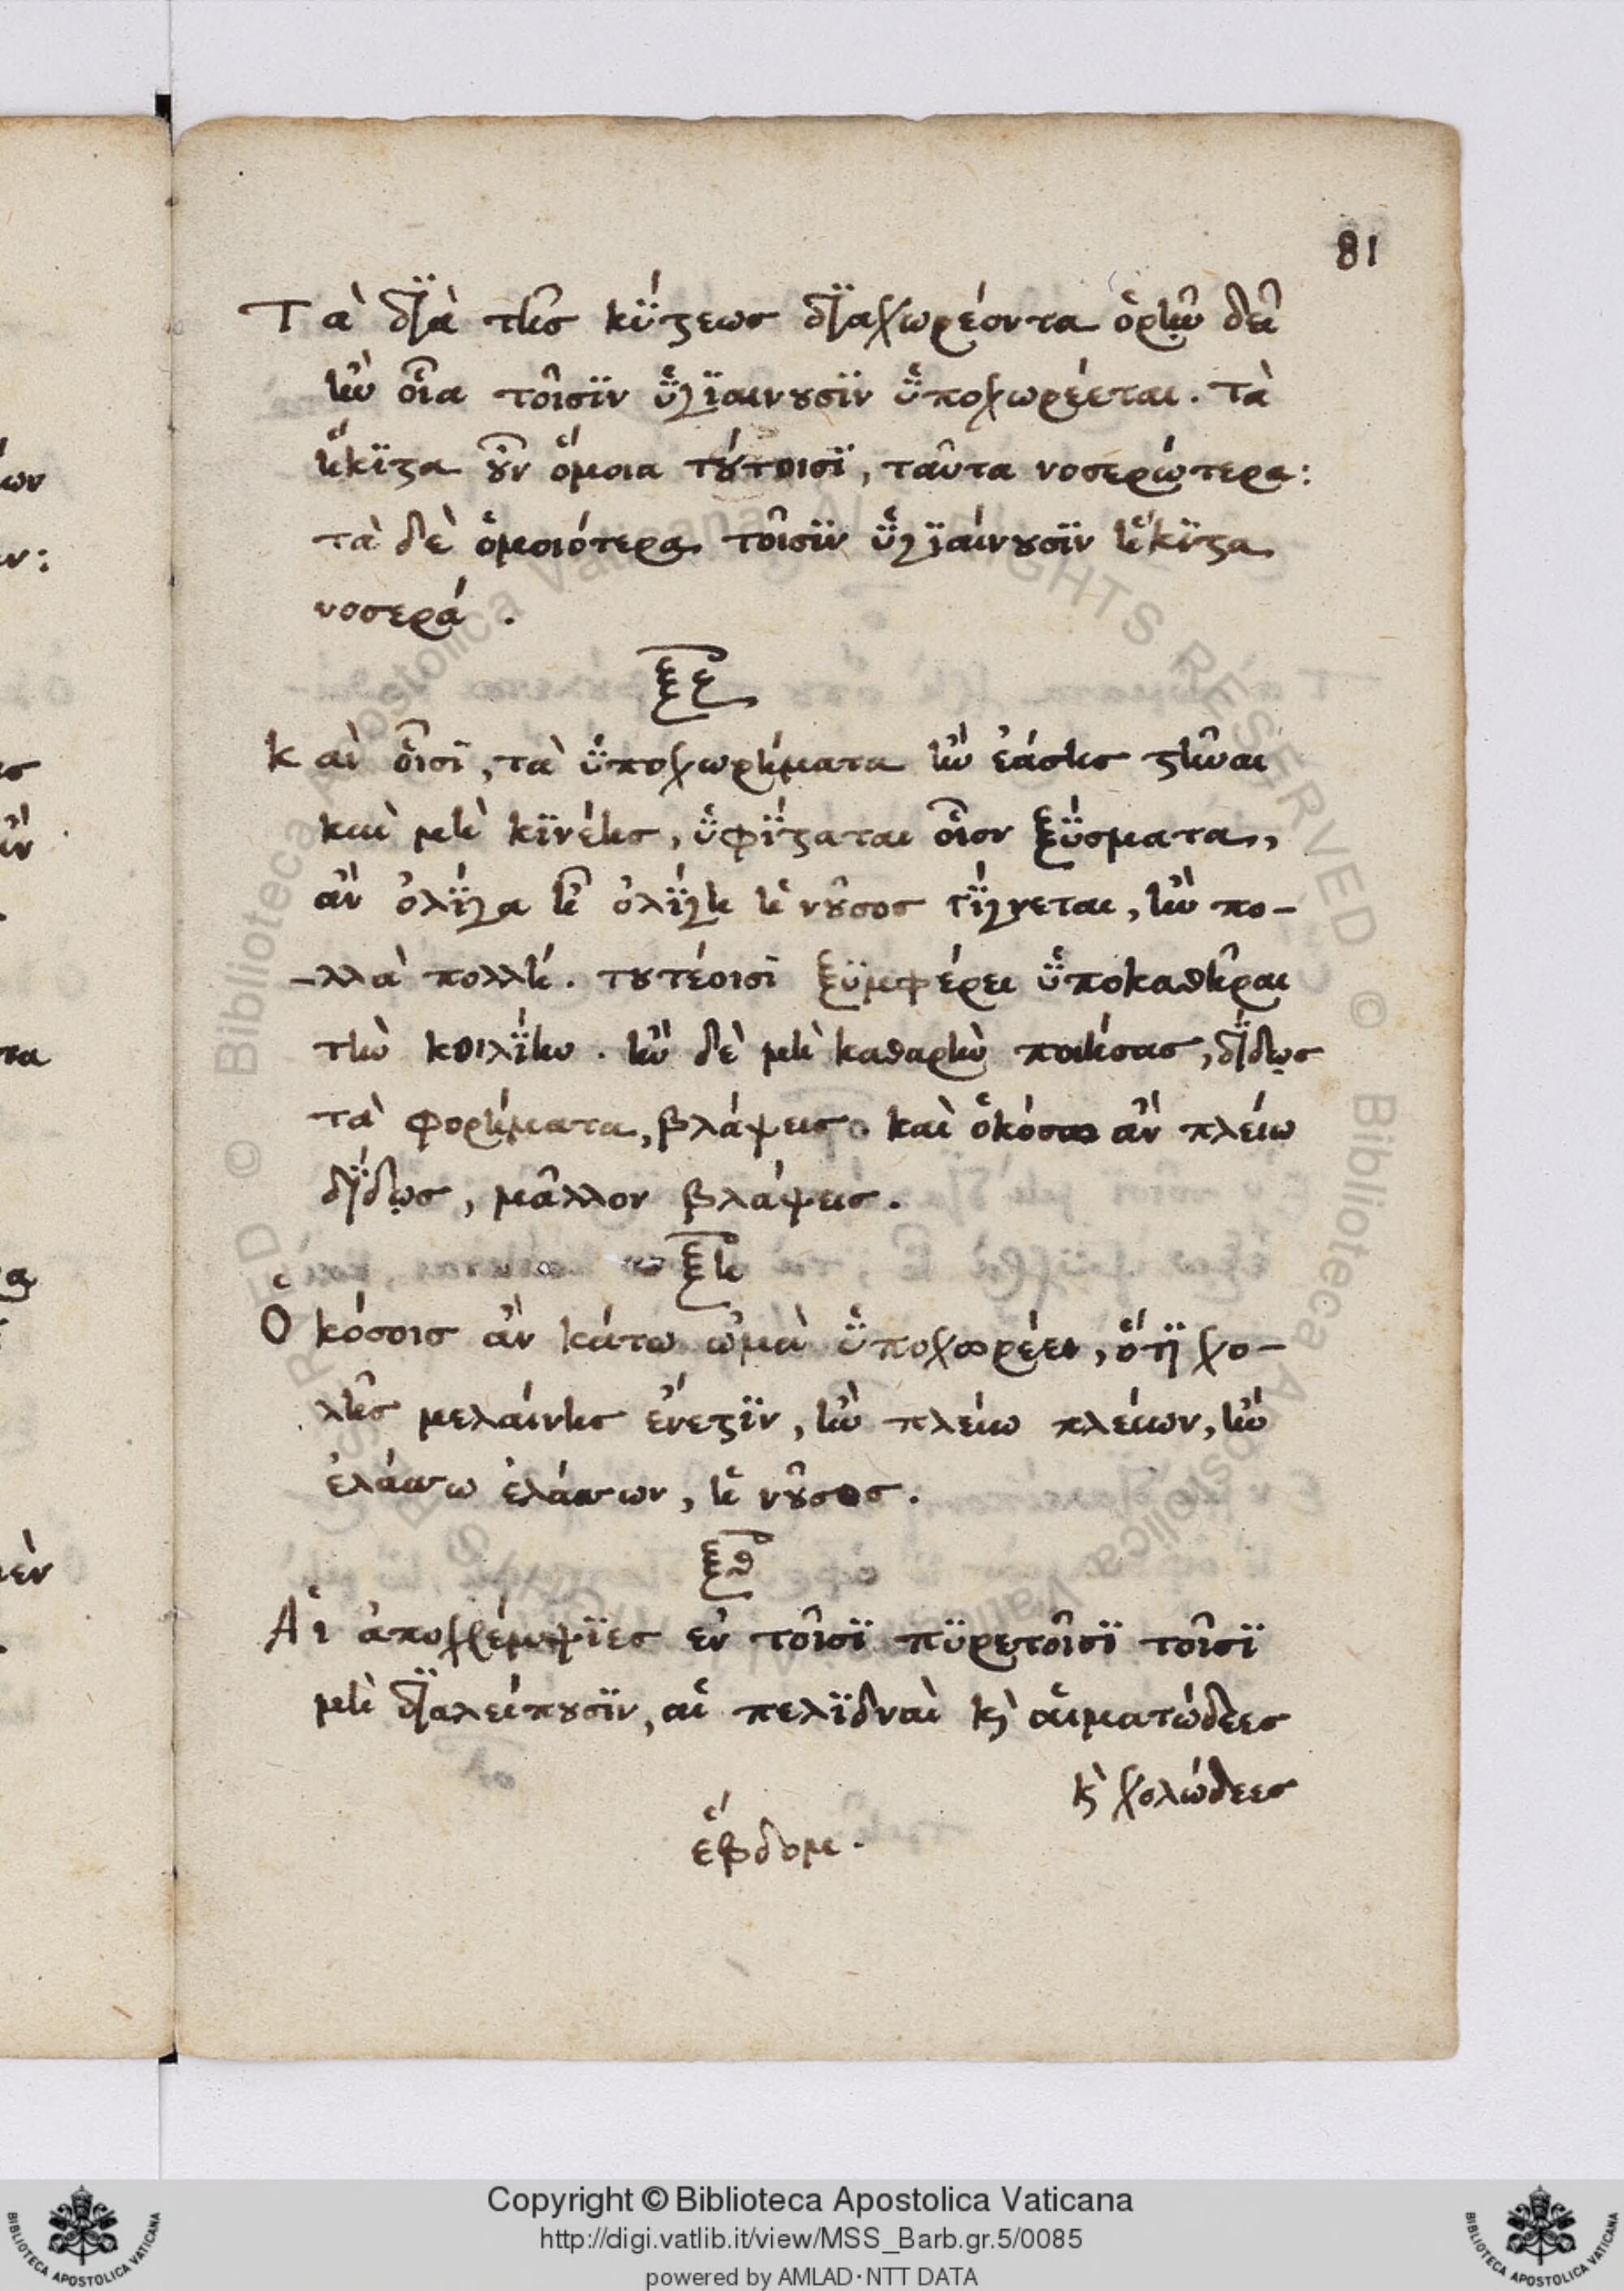 81
Τὰ δϊὰ τῆς κύϛεως δϊαχωρέοντα ὁρῆν δεῖ
ἢν οἷα τοῖσϊν ὑγϊαινουσϊν ὑποχωρέεται. τὰ
ἥκϊϛα οὖν ὅμοια τούτοισϊ, ταῦτα νοσερώτερα:
τὰ δὲ ὁμοιότερα τοῖσϊν ὑγϊαίνουσϊν ἥκϊϛα
νοσερά.
ξζ
Καὶ οἷσϊ, τὰ ὑποχωρήματα ἢν ἐάσῃς ϛῆναι
καὶ μὴ κϊνέῃς, ὑφΐϛαται οἷον ξύσματα,
ἂν ὀλΐγα ᾖ ὀλΐγη ἡ νοῦσος γΐγνεται, ἢν πο-
-λλὰ πολλή. τουτέοισϊ ξϋμφέρει ὑποκαθῆραι
τὴν κοιλΐην. ἢν δὲ μὴ καθαρὴν ποιήσας, δϊδῷς
τὰ φορήματα, βλάψεις. καὶ ὁκόσα ἂν πλείω
δϊδῷς, μᾶλλον βλάψεις.
ξη
Ὁκόσοις ἂν κάτω ὠμὰ ὑποχωρέει, ὅτϊ χο-
λῆς μελαίνης ἔνεϛϊν, ἢν πλείω πλείων, ἢν
ἐλάσσω ἐλάσσων, ἡ νοῦσος.
ξθ
Αἱ ἀποχρέμψϊες ἐν τοῖσϊ πϋρετοῖσϊ τοῖσϊ
μὴ δϊαλείπουσϊν, αἱ πελϊδναὶ κ̀ αἱματώδεες
κ̀ χολώδεες
ἕβδομ.
Copyright © Biblioteca Apostolica Vaticana
http://digi.vatlib.it/view/MSS_Barb.gr.5/0085
powered by AMLAD·NTT DATA